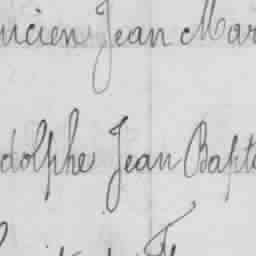 ucien Jean Mar
dolphe Jean Bapt